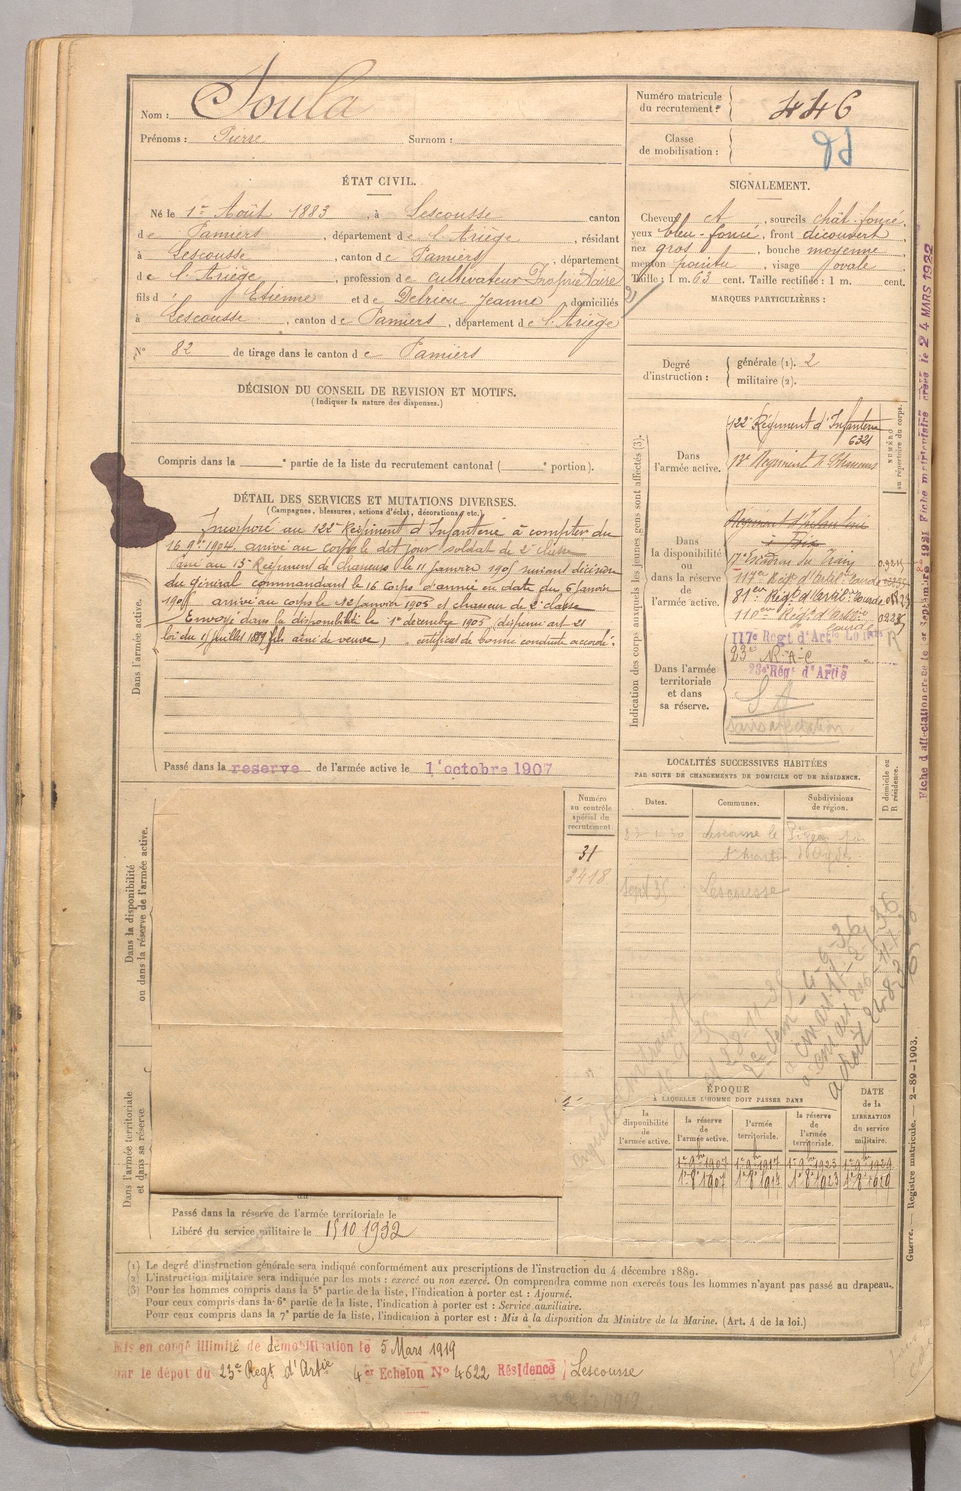 Nom : Soula
Prénoms : Pierre Surnom :
Numéro matricule du recrutement : 446
Classe de mobilisation :
ÉTAT CIVIL.
Né le 1er Août 1883, à Lescousse canton
de Pamiers, département de l'Ariège, résidant
à Lescousse, canton de Pamiers, département
de l'Ariège, profession de cultivateur Propriétaire
fils d' Etienne et de Delrieu Jeanne domiciliés
à Lescousse, canton de Pamiers, département de l'Ariège
N° 82 de tirage dans le canton de Pamiers
SIGNALEMENT.
Cheveux ct, sourcils chât-foncé,
yeux bleu-foncé, front découvert,
nez gros, bouche moyenne,
menton pointu, visage ovale
Taille : 1 m. 63 cent. Taille rectifiée : 1 m. cent.
MARQUES PARTICULIÈRES :
Degré d'instruction : générale (1). 2
militaire (2).
DÉCISION DU CONSEIL DE REVISION ET MOTIFS.
(Indiquer la nature des dispenses.)
Compris dans la e partie de la liste du recrutement cantonal ( e portion).
DÉTAIL DES SERVICES ET MUTATIONS DIVERSES.
(Campagnes, blessures, actions d'éclat, décorations, etc.)
Dans l'armée active.
Incorporé au 122e Régiment d'Infanterie à compter du
16 9bre 1904. arrivé au corps le dit jour soldat de 2e classe
Passé au 13e Régiment de Chasseurs le 11 janvier 1905 suivant décision
du général commandant le 16 Corps d'armée en date du 6 janvier
1905 arrivé au corps le 12 janvier 1905 et chasseur de 2e classe
Envoyé dans la disponibilité le 1er décembre 1905 (dispensé art 21
loi du 15 juillet 1889 fils aîné de veuve) certificat de bonne conduite accordé.
Passé dans la réserve de l'armée active le 1er octobre 1907
Indication des corps auxquels les jeunes gens sont affectés (3).
NUMÉRO au répertoire du corps.
Dans l'armée active.
122e Régiment d'Infanterie
6321
13e Régiment de Chasseurs
Dans la disponibilité ou dans la réserve de l'armée active.
Régiment d'Infanterie
à Foix
17e Escadron du Train
117e Régt d'Artil. Lourde
81e Régt d'Artil. Lourde
110e Régt d'Artie
Lourde
Dans l'armée territoriale et dans sa réserve.
117e Regt d'Artie Lourde
23e R.A.C
23e Régt d'Artie
S A
sans affectation
Fiche d'affectation créée le 1er Septembre 1921 Fiche matriculaire créée le 24 MARS 1922
LOCALITÉS SUCCESSIVES HABITÉES
PAR SUITE DE CHANGEMENTS DE DOMICILE OU DE RÉSIDENCE.
Dates. Communes. Subdivisions de région. D domicile ou R résidence.
Lescousse
Numéro au contrôle spécial du recrutement
31
2418
Dans la disponibilité ou dans la réserve de l'armée active.
Dans l'armée territoriale et dans sa réserve.
ÉPOQUE
À LAQUELLE L'HOMME DOIT PASSER DANS
DATE de la LIBÉRATION du service militaire.
la disponibilité de l'armée active.
la réserve de l'armée active.
l'armée territoriale.
la réserve de l'armée territoriale.
1er 9bre 1907 1er 9bre 1917 1er 9bre 1923 1er 9bre 1929
Passé dans la réserve de l'armée territoriale le
Libéré du service militaire le 15 10 1932
(1) Le degré d'instruction générale sera indiqué conformément aux prescriptions de l'instruction du 4 décembre 1889.
(2) L'instruction militaire sera indiquée par les mots : exercé ou non exercé. On comprendra comme non exercés tous les hommes n'ayant pas passé au drapeau.
(3) Pour les hommes compris dans la 5e partie de la liste, l'indication à porter est : Ajourné.
Pour ceux compris dans la 6e partie de la liste, l'indication à porter est : Service auxiliaire.
Pour ceux compris dans la 7e partie de la liste, l'indication à porter est : Mis à la disposition du Ministre de la Marine. (Art. 4 de la loi.)
Guerre. — Registre matricule. — 2-89-1903.
Mis en congé illimité de démobilisation le 5 Mars 1919
par le dépôt du 23e Régt d'Artie 4er Echelon N° 4622 Résidence Lescousse